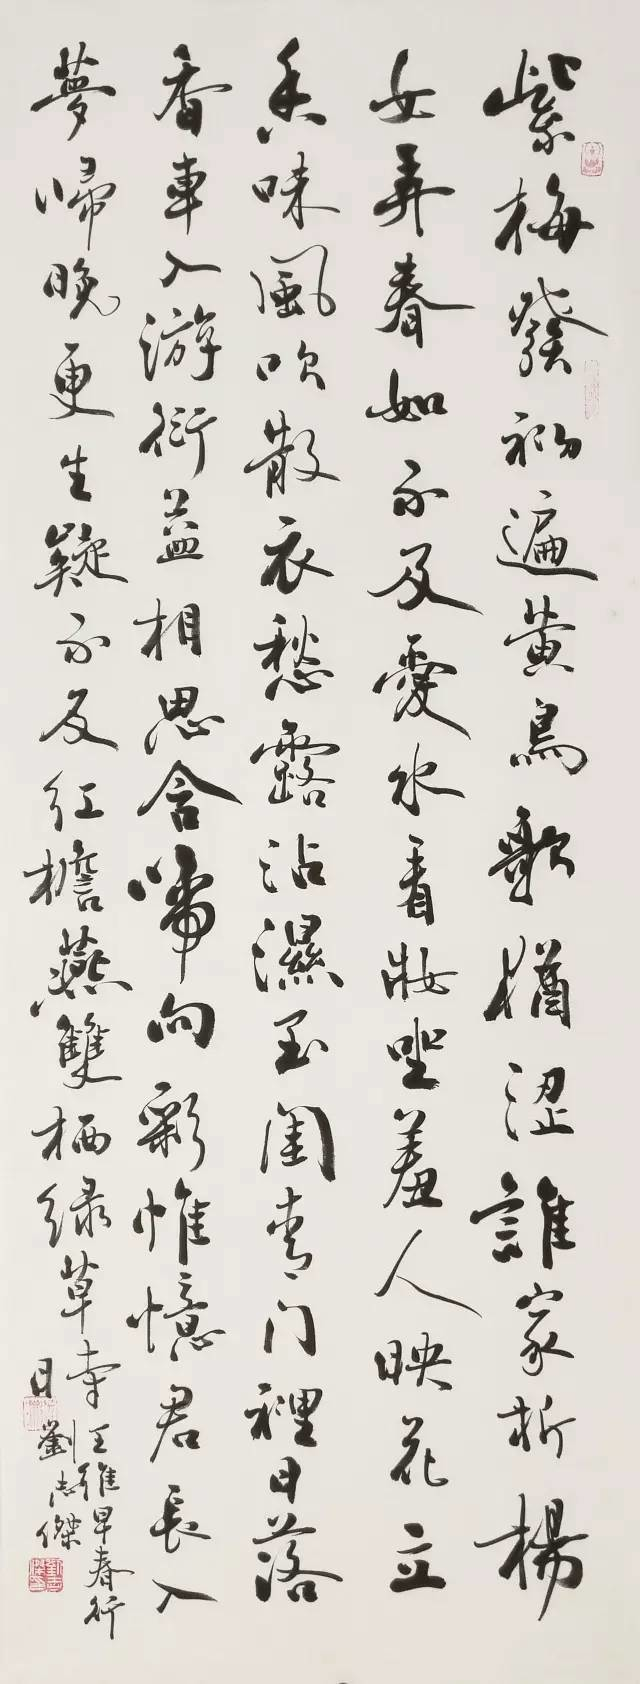 紫梅發初遍黄鳥歌猶涩誰家折楊
女弄春如不及愛水看妝坐羞人映花立
香味風吹散衣愁露沾濕玉閨青门裡日落
香車入游衍益相思含啼向彩帷憶君長入
夢歸晚更生疑不及红檐燕雙栖绿草時
王維早春行
劉志傑